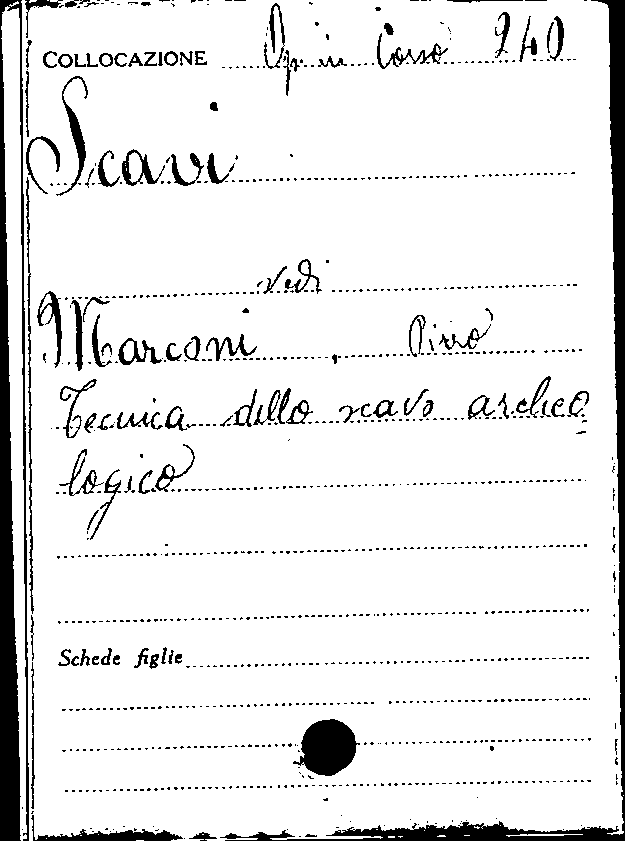 COLLOCAZIONE Op. in Corso 240
Scavi
vedi
Marconi, Pirro
Tecnica dello scavo archeo=
logico
Schede figlie